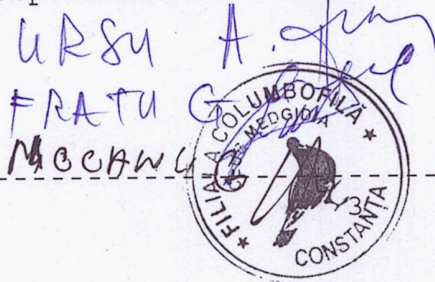 URSU A.
FRATU G
MOCANU G
FILIALA COLUMBOFILA
MEDGIDIA
3
CONSTANTA